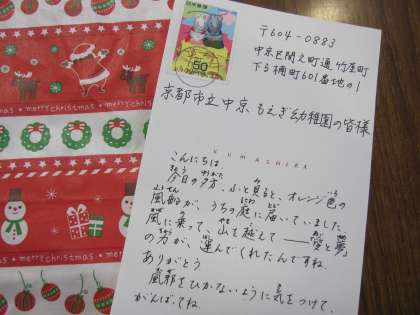 日本郵便
50
〒604-0883
中京区間之町通竹屋町
下る楠町601番地の1
京都市立中京もえぎ幼稚園の皆様
KUMASHIRA
こんにちは
今日の夕方、ふと見ると、オレンジ色の
風船が、うちの庭に届いていました。
風に乗って、山を越えて――「愛と夢」
の方が、運んでくれたんですね
ありがとう
風邪をひかないように気をつけて、
がんばってね。
merry christmas
merry christmas
merry christmas
merry christmas